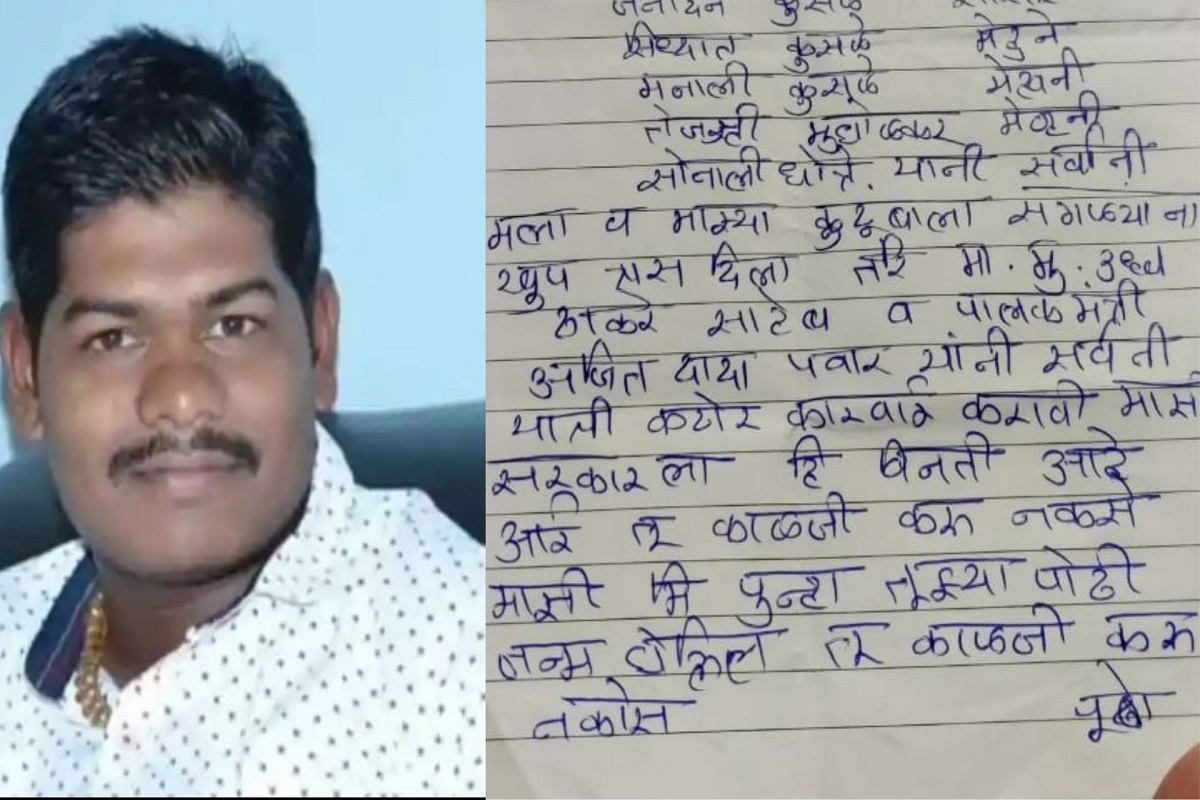 जनार्दन कुसळे
सिध्यात कुसळे मेहुने
मनाली कुसळे मेव्हनी
तेजस्वी मुधोळकर मेव्हनी
सोनाली धोत्रे. यानी सर्वानी
मला व माझ्या कुटूबाला सगळ्याना
खूप त्रास दिला तरि मा. मु. उध्दव
ठाकरे साहेब व पालकमंत्री
अजित दादा पवार यांनी सर्व ती
याती कठोर कारवाई करावी माझी
सरकारला हि विनती आहे
आई तू काळजी करू नकोस
माझी मि पुन्हा तूझ्या पोटी
जन्म घेईल तू काळजी करू
नकोस